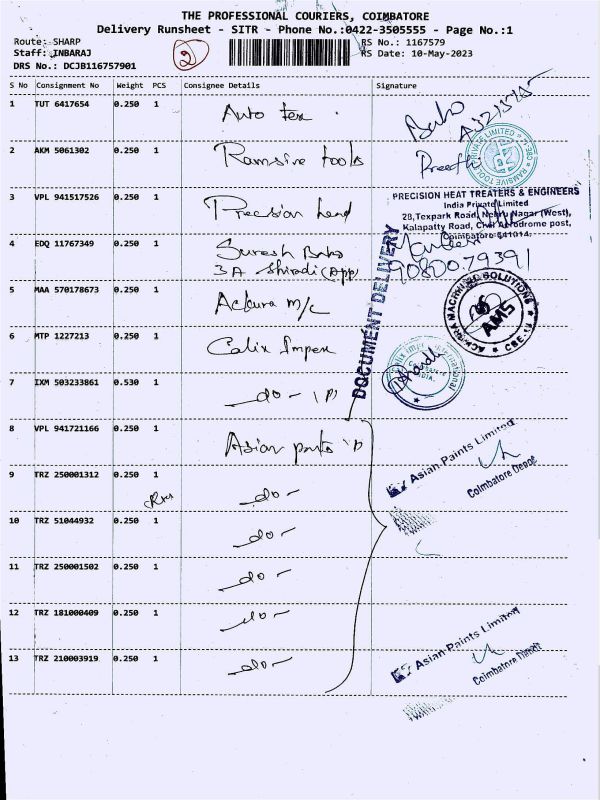 THE PROFESSIONAL COURIERS, COIMBATORE
Delivery Runsheet - SITR - Phone No.:0422-3505555 - Page No.:1
Route: SHARP
RS No.: 1167579
Staff: INBARAJ
2
RS Date: 10-May-2023
DRS No.: DCJB116757901
S No Consignment No Weight PCS Consignee Details Signature
1 TUT 6417654 0.250 1 Auto Tex
Babo
2 AKM 5061302 0.250 1 Ramsive tools
Preethi
PRIVATE LIMITED
RAMSIVE TOOLS
3 VPL 941517526 0.250 1 Precision head
PRECISION HEAT TREATERS & ENGINEERS
India Private Limited
28, Texpark Road, Nehru Nagar (West),
Kalapatty Road, Civil Aerodrome post,
Coimbatore-641014.
4 EDQ 11767349 0.250 1 Suresh Babo
3A Shiradi (App)
9080079391
DOCUMENT DELIVERY
5 MAA 570178673 0.250 1 Ackura m/c
SOLUTIONS
AMS
6 MTP 1227213 0.250 1 Calix Impex
Calix Impex International
Coimbatore
India.
7 IXM 503233861 0.530 1 -do- 1P)
8 VPL 941721166 0.250 1 Asian paints
Asian Paints Limited
Coimbatore Depot
9 TRZ 250001312 0.250 1 -do-
10 TRZ 51044932 0.250 1 -do-
11 TRZ 250001502 0.250 1 -do-
12 TRZ 181000409 0.250 1 -do-
Asian Paints Limited
Coimbatore Depot
13 TRZ 210003919 0.250 1 -do-